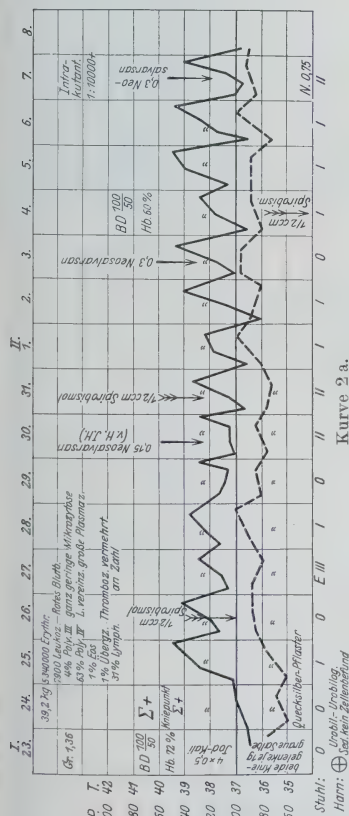 I.
23. 24. 25. 26. 27. 28. 29. 30. 31.
II.
1. 2. 3. 4. 5. 6. 7. 8.
P T.
42
41
40
39
38
37
36
35
Gr. 1,36
39,2 kg 5340000 Erythr.
7900 Leukoz. – Rotes Blutb.
4% Poly. III ganz geringe Mikrozytose
63% Poly. IV L. vereinz. große Plasmaz.
1% Eos
1% Übergz. Thromboz. vermehrt
31% Lymph. an Zahl
BD 100/50 Σ+
Hb. 72% Kniepunkt Σ+
4×0,5
Jod-Kali
beide Knie-
gelenke je 1g
graue Salbe
Quecksilber-Pflaster
1/2 ccm
Spirobismol
0,15 Neosalvarsan
(v. H. J.H.)
1/2 ccm Spirobismol
0,3 Neosalvarsan
BD 100/50
Hb. 60%
1/2 ccm
Spirobism.
Intra-
kutant.
1:10000+
0,3 Neo-
salvarsan
N. 0,75
Stuhl: 0 0 I 0 E III I 0 II II I I 0 I I I II
Harn: ⊕ Urobil-Urobilog.
Sed. kein Zellenbefund
Kurve 2a.